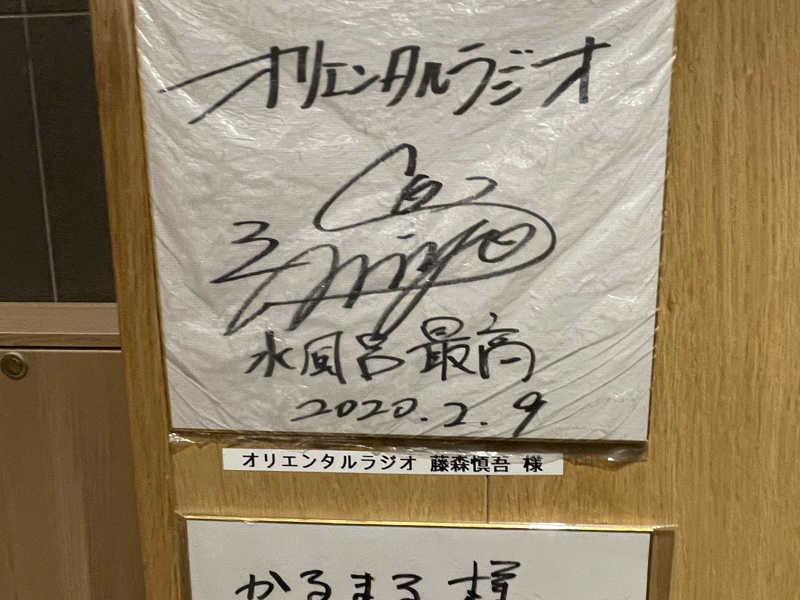 オリエンタルラジオ
水風呂最高
2020.2.9
オリエンタルラジオ 藤森慎吾 様
かるまる 様